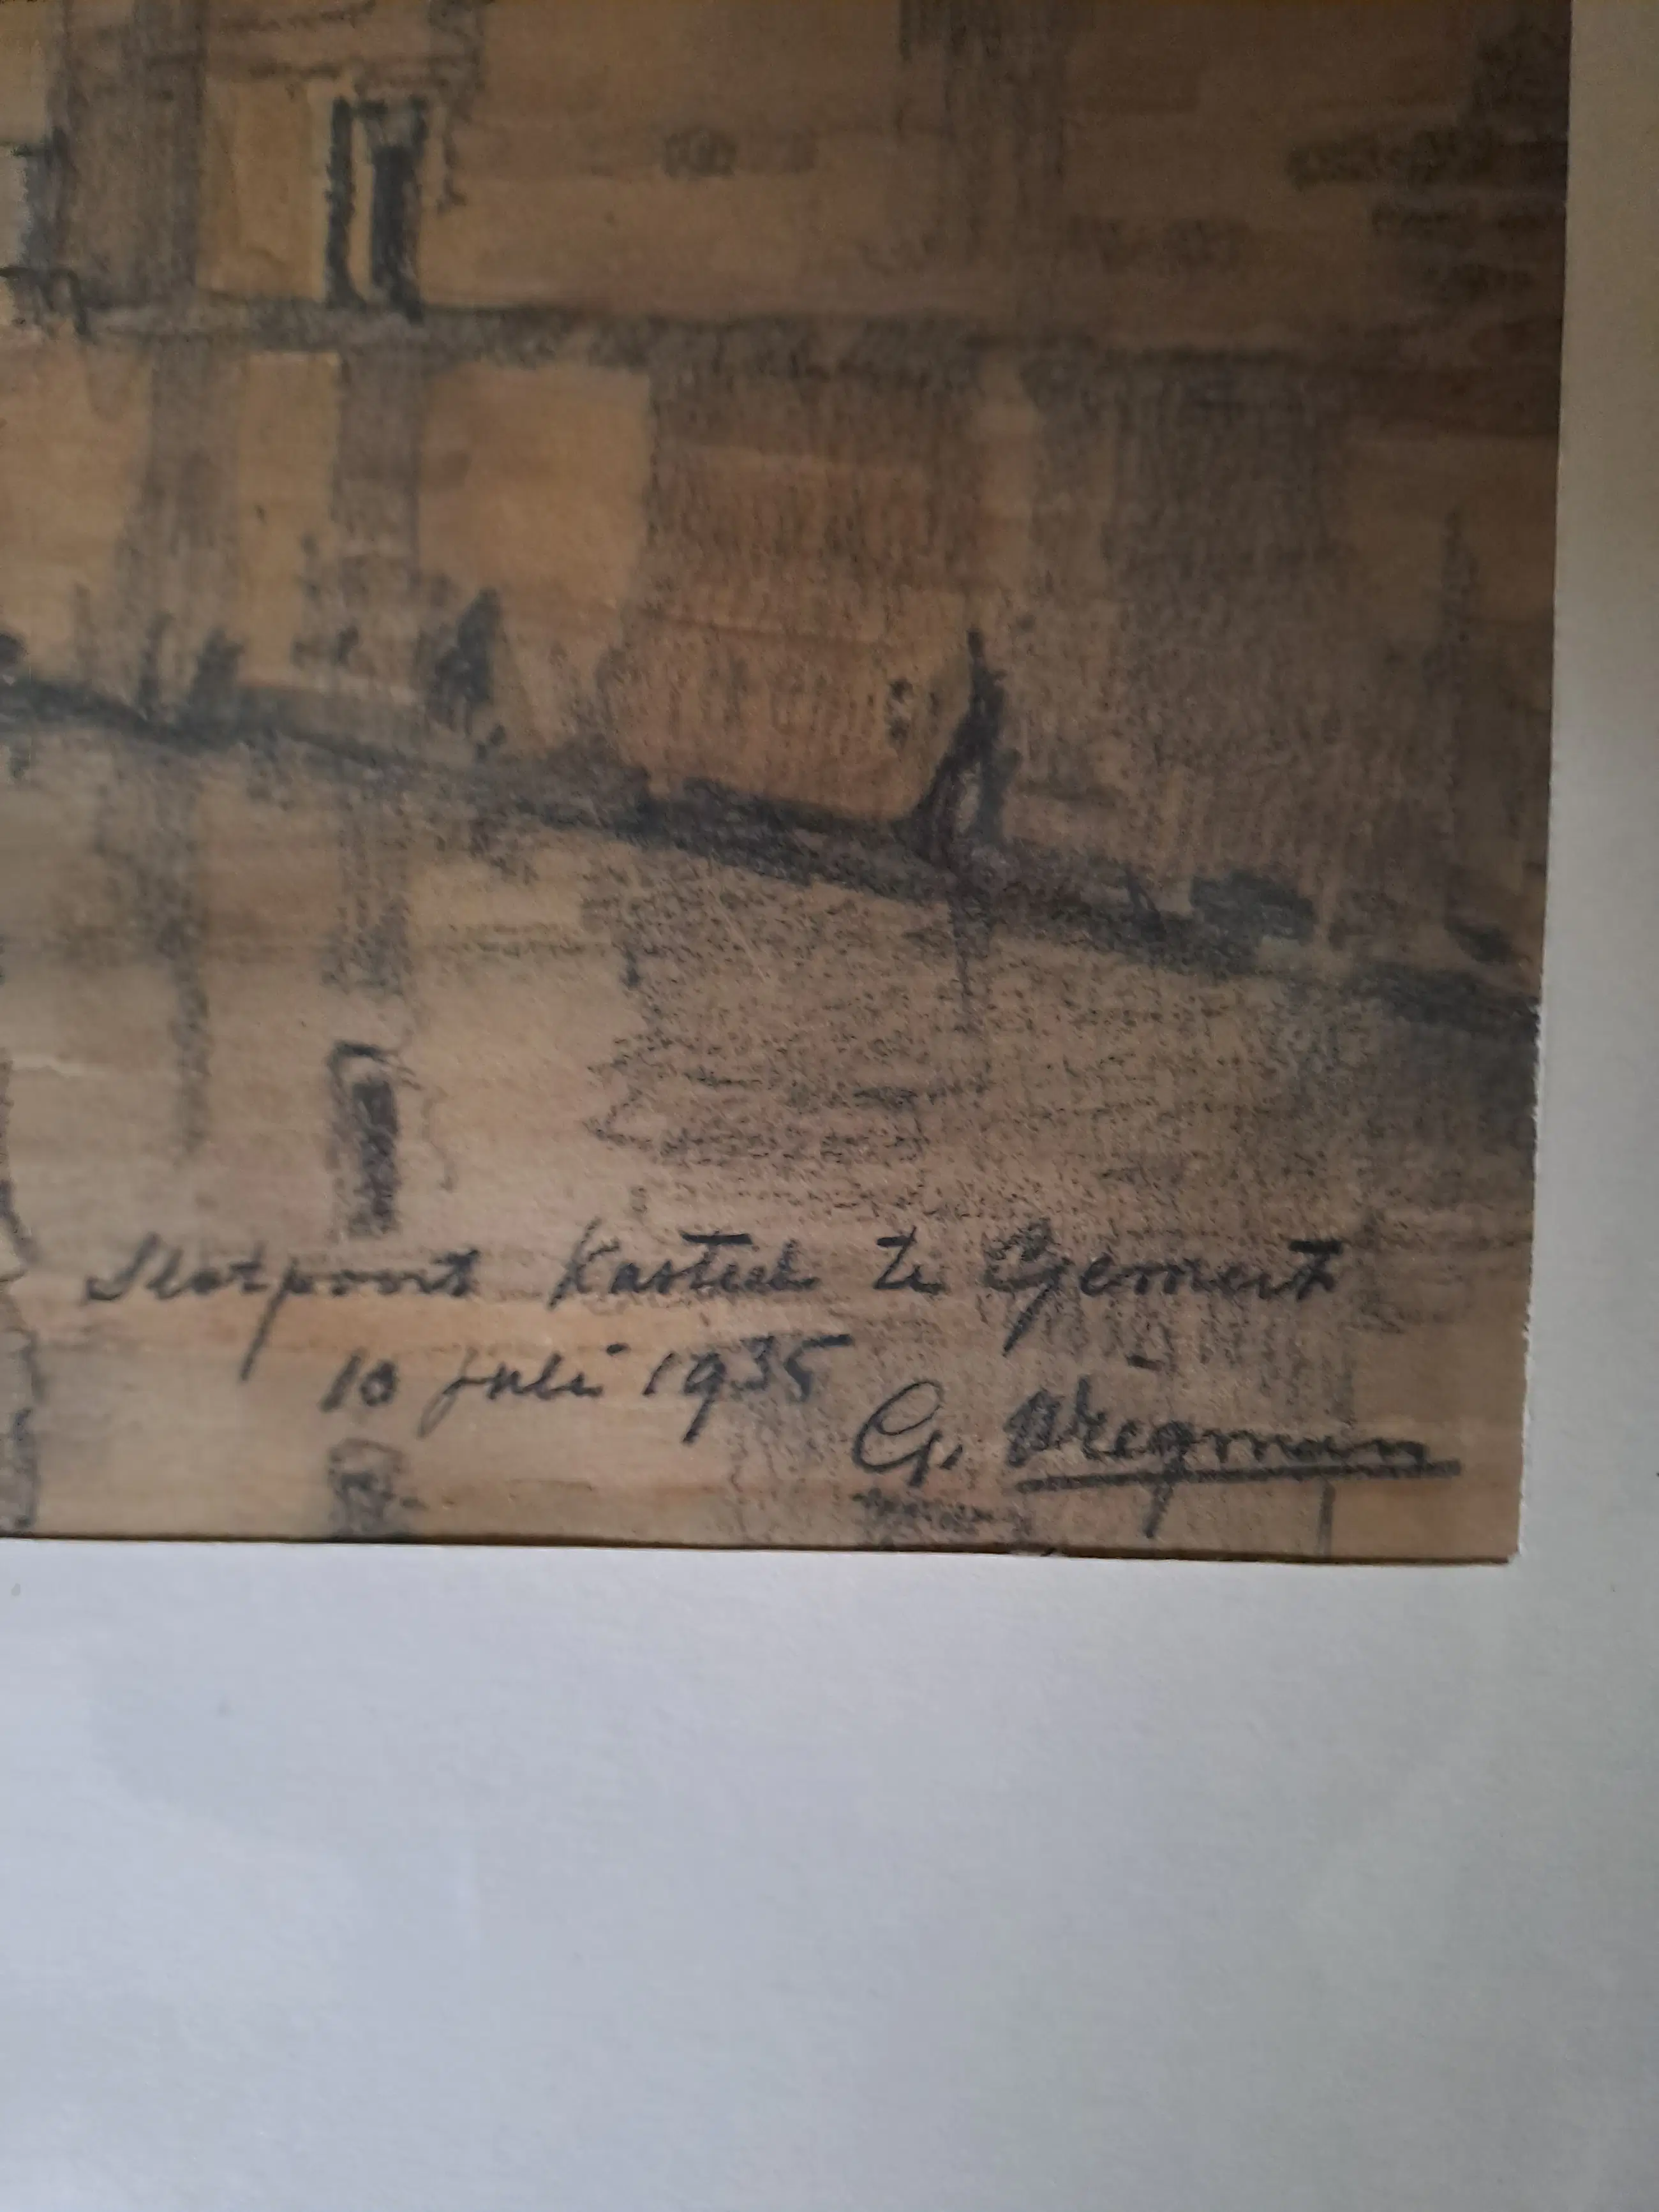 Slotpoort Kasteel te Gemert
10 juli 1935
G. Wregman